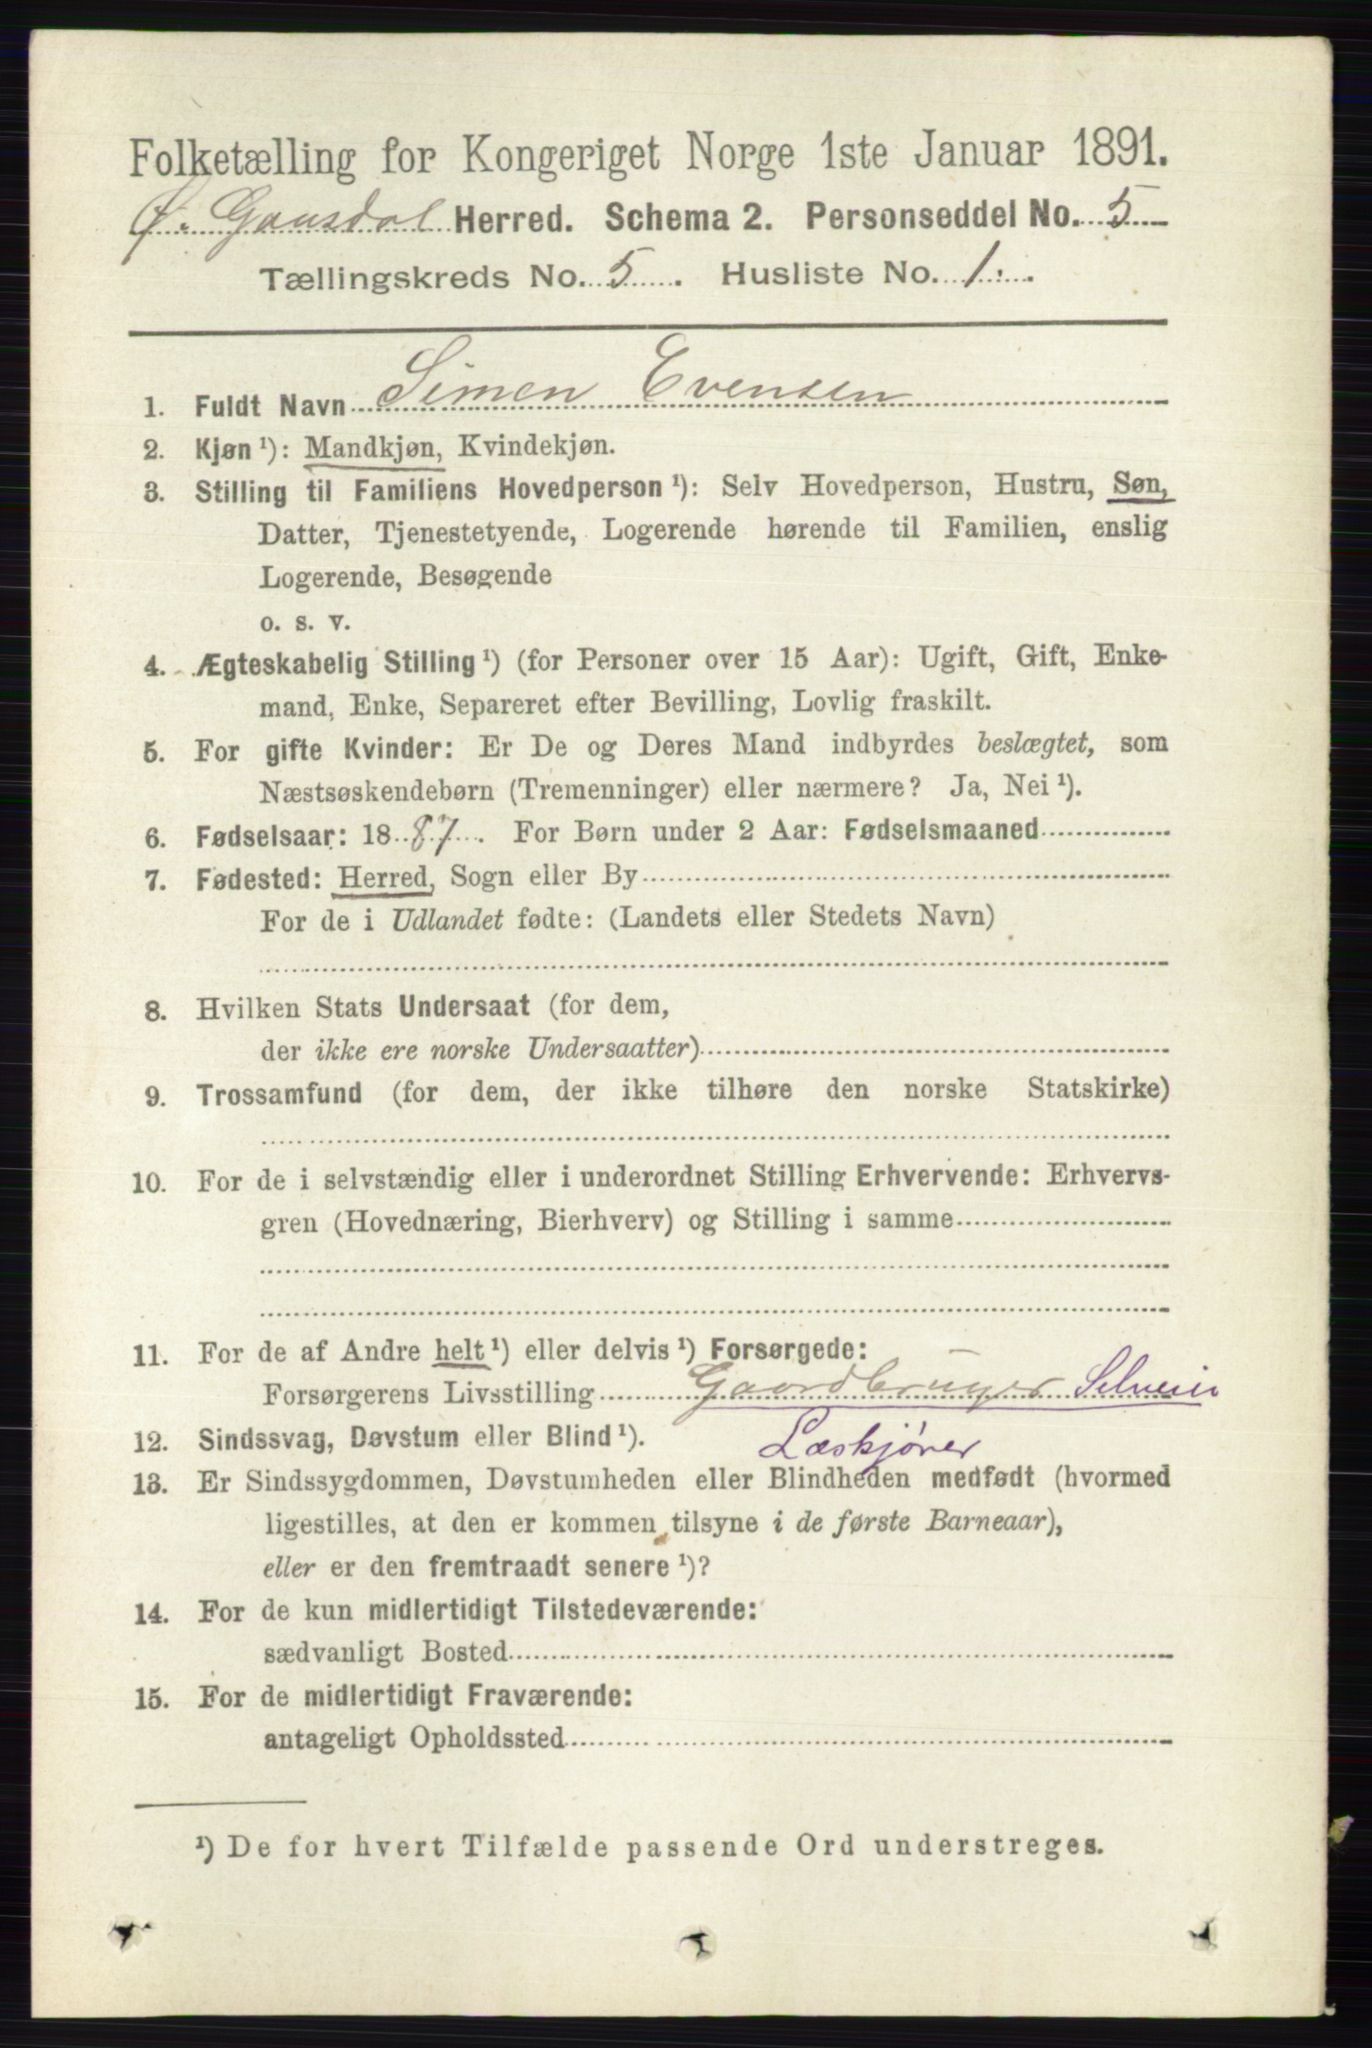 Folketælling for Kongeriget Norge 1ste Januar 1891.
Ø. Gausdal Herred. Schema 2. Personseddel No. 5
Tællingskreds No. 5. Husliste No. 1.
1. Fuldt Navn Simen Evensen
2. Kjøn ¹): Mandkjøn, Kvindekjøn.
3. Stilling til Familiens Hovedperson ¹): Selv Hovedperson, Hustru, Søn,
Datter, Tjenestetyende, Logerende hørende til Familien, enslig
Logerende, Besøgende
o. s. v.
4. Ægteskabelig Stilling ¹) (for Personer over 15 Aar): Ugift, Gift, Enke-
mand, Enke, Separeret efter Bevilling, Lovlig fraskilt.
5. For gifte Kvinder: Er De og Deres Mand indbyrdes beslægtet, som
Næstsøskendebørn (Tremenninger) eller nærmere? Ja, Nei ¹).
6. Fødselsaar: 1887. For Børn under 2 Aar: Fødselsmaaned
7. Fødested: Herred, Sogn eller By
For de i Udlandet fødte: (Landets eller Stedets Navn)
8. Hvilken Stats Undersaat (for dem,
der ikke ere norske Undersaatter)
9. Trossamfund (for dem, der ikke tilhøre den norske Statskirke)
10. For de i selvstændig eller i underordnet Stilling Erhvervende: Erhvervs-
gren (Hovednæring, Bierhverv) og Stilling i samme
11. For de af Andre helt ¹) eller delvis ¹) Forsørgede:
Forsørgerens Livsstilling Gaardbruger Selveier
12. Sindssvag, Døvstum eller Blind ¹). Læskjører
13. Er Sindssygdommen, Døvstumheden eller Blindheden medfødt (hvormed
ligestilles, at den er kommen tilsyne i de første Barneaar),
eller er den fremtraadt senere ¹)?
14. For de kun midlertidigt Tilstedeværende:
sædvanligt Bosted
15. For de midlertidigt Fraværende:
antageligt Opholdssted
¹) De for hvert Tilfælde passende Ord understreges.